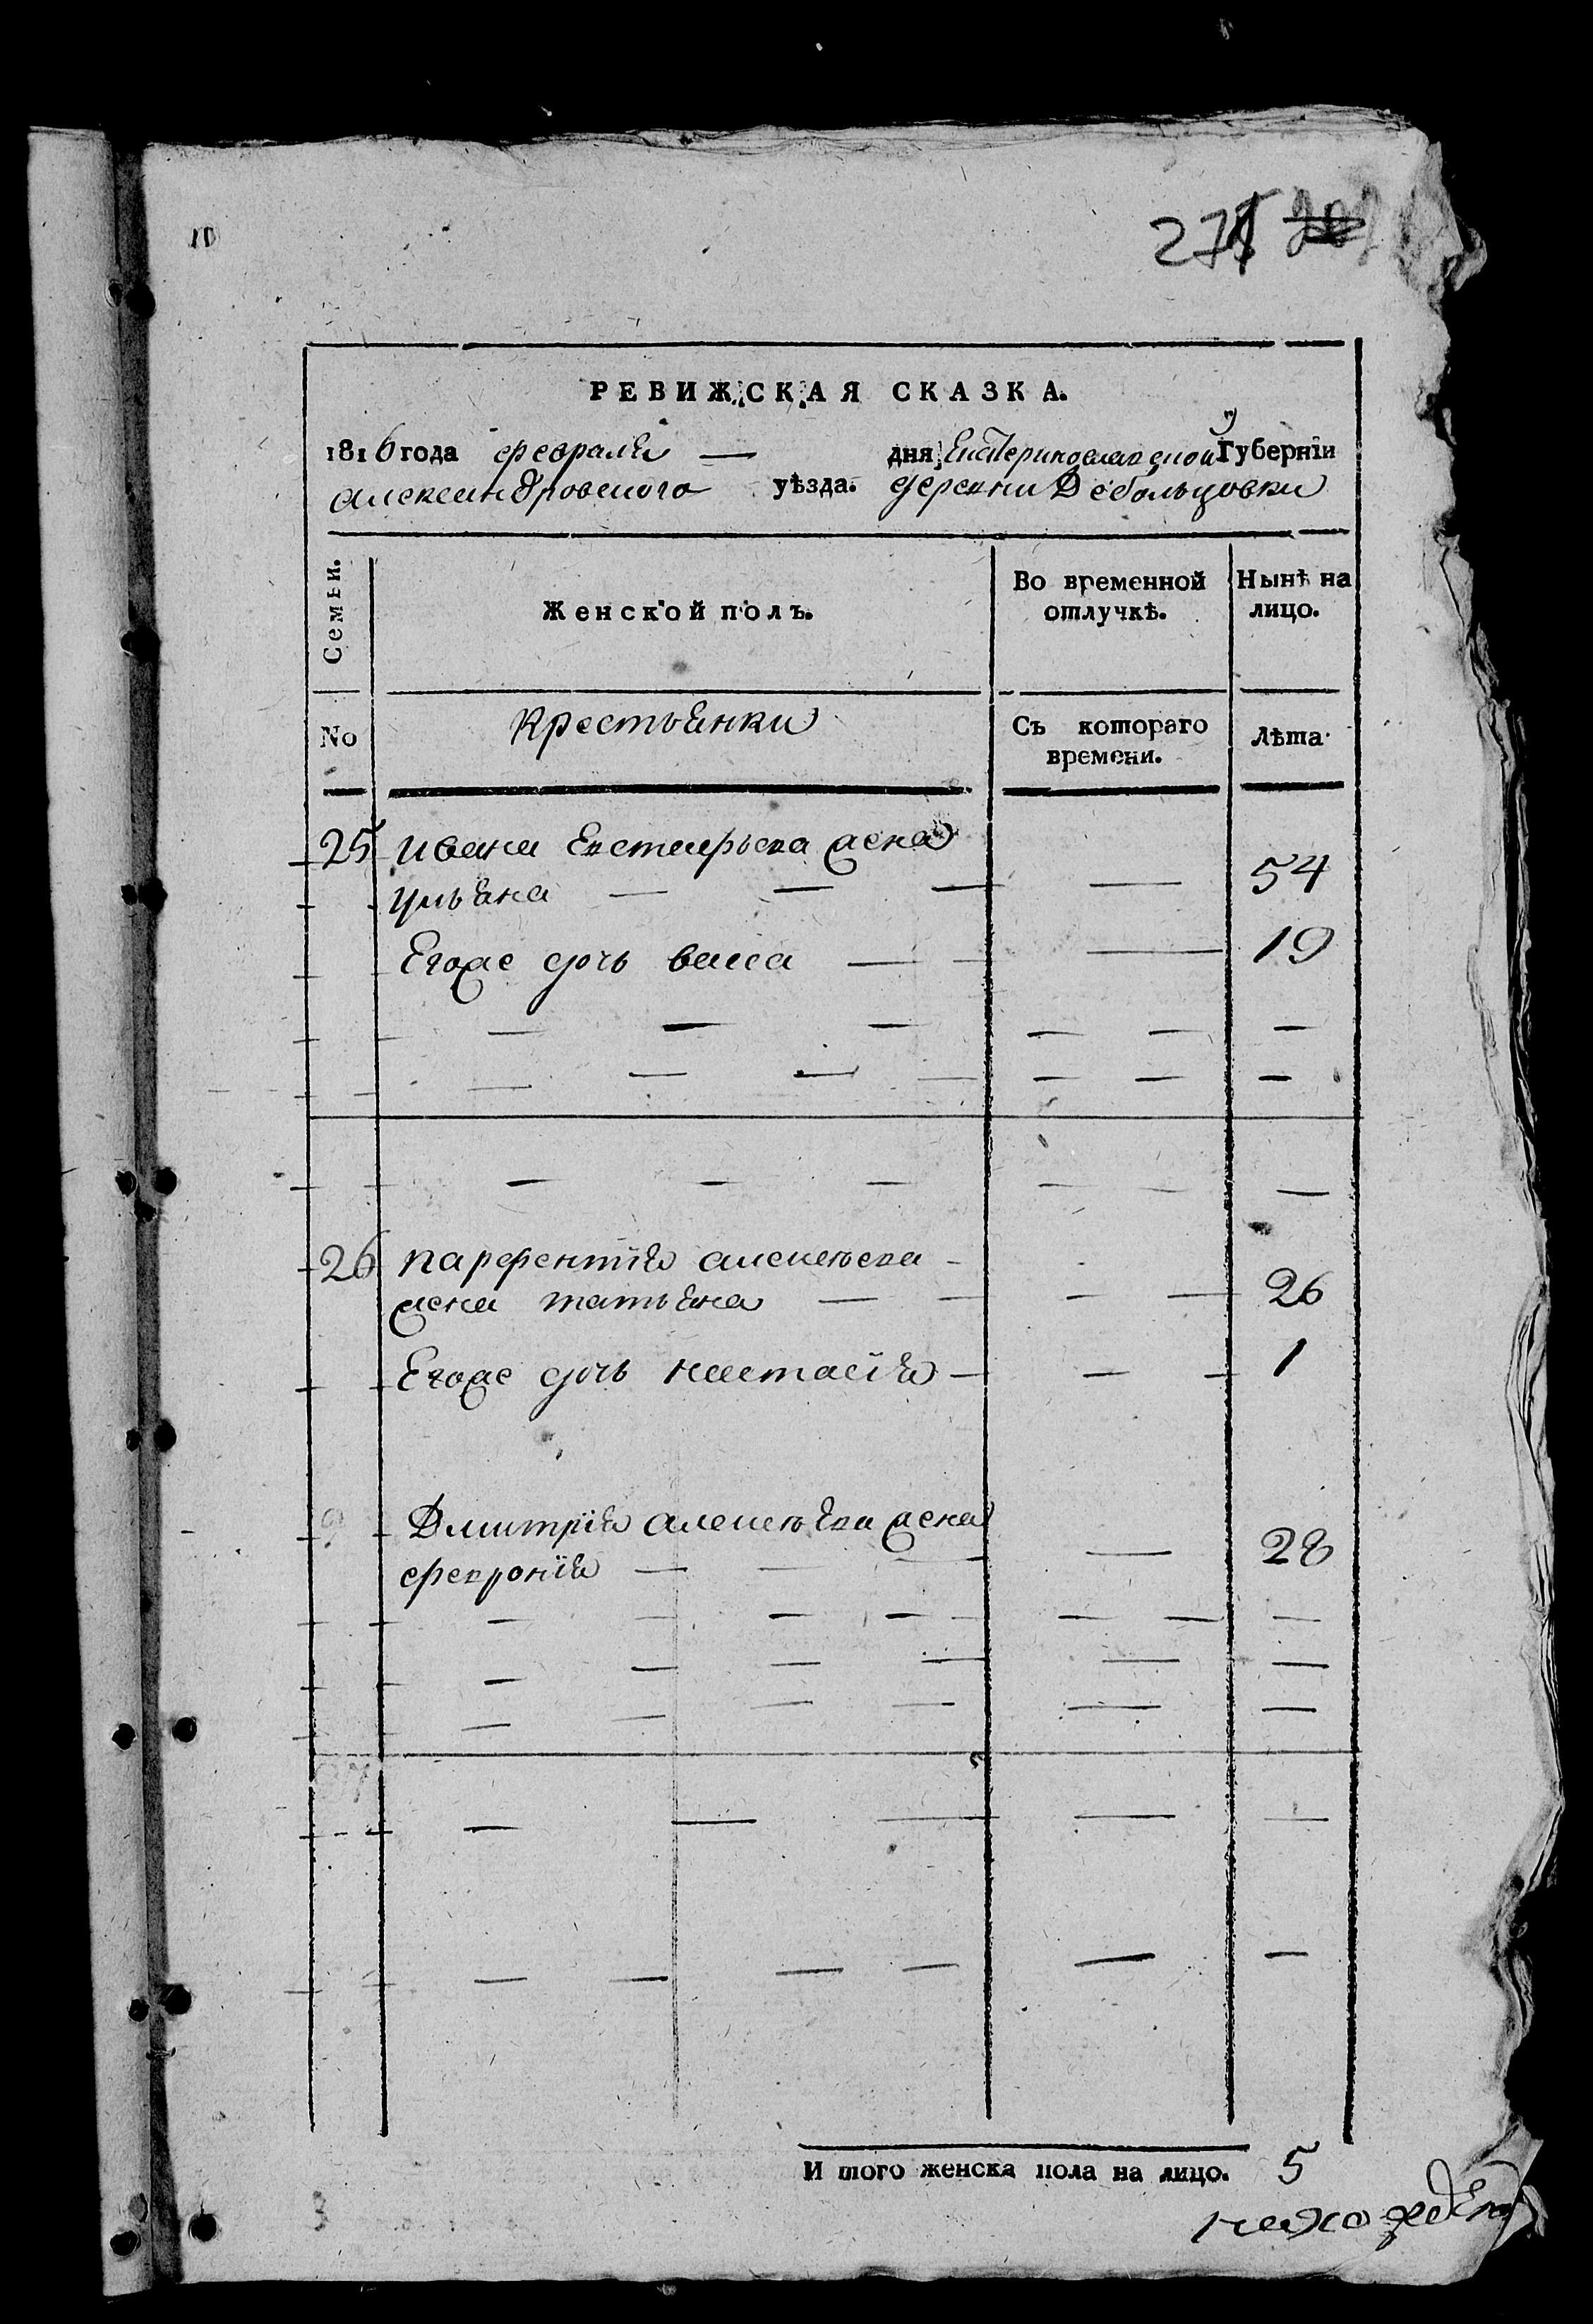 10
275
РЕВИЖСКАЯ СКАЗКА.
1816 года февраля — дня, Екатеринославской Губерніи
александровского уѣзда. деревни Дебольцовки
Семьи.
Женской полъ.
Во временной отлучкѣ.
Нынѣ на лицо.
No
Крестьянки
Съ котораго времени.
Лѣта
25 ивана Евстафьева жена
ульяна — — — — 54
Егоже дочь васса — — — 19
26 парфентія алексѣева -
жена татьяна — — — — 26
Егоже дочь настасія — — - 1
Дмитрія алексѣева жена
февронія — — — — 28
И того женска пола на лицо. 5